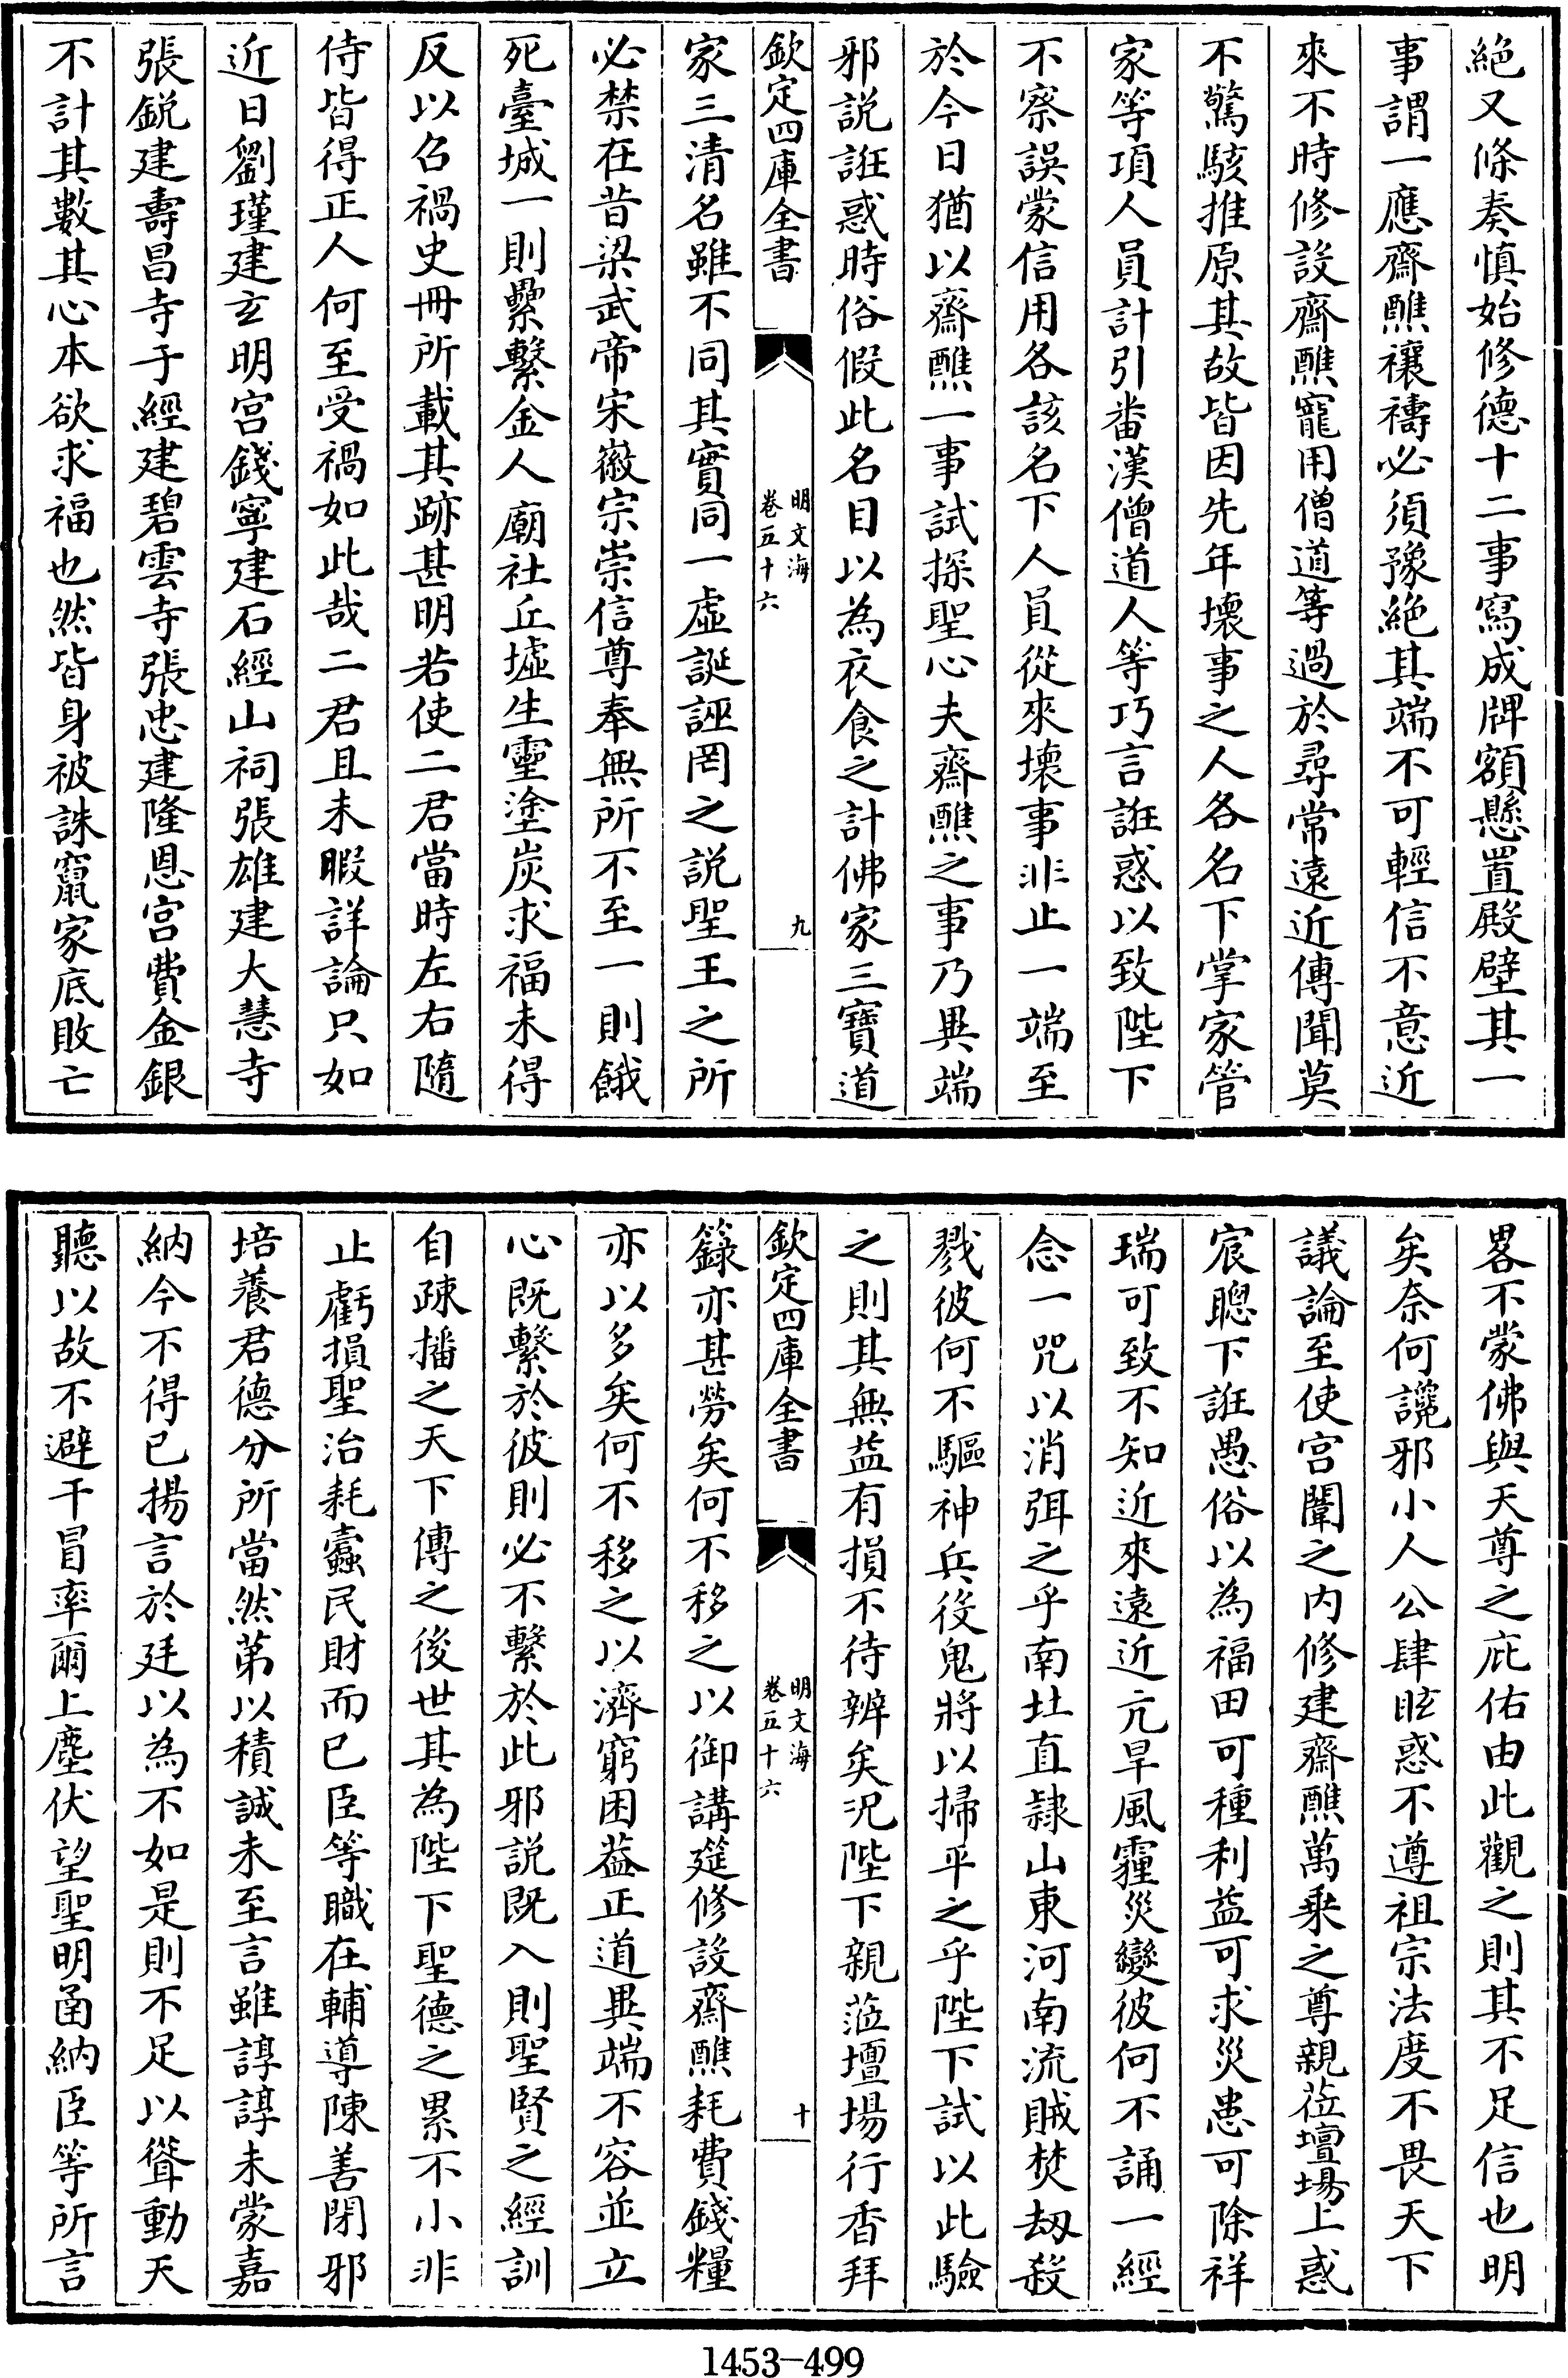 絶又條奏慎始修德十二事寫成牌額懸置殿壁其一
事謂一應齋醮禳禱必須豫絶其端不可輕信不意近
來不時修設齋醮寵用僧道等過於尋常遠近傳聞莫
不驚駭推原其故皆因先年壞事之人各名下掌家管
家等項人員計引番漢僧道人等巧言誑惑以致陛下
不察誤蒙信用各該名下人員從來壞事非止一端至
於今日猶以齋醮一事試探聖心夫齋醮之事乃異端
邪説誑惑時俗假此名目以為衣食之計佛家三寶道
欽定四庫全書
明文海
卷五十六
九
家三清名雖不同其實同一虛誕誣罔之説聖王之所
必禁在昔梁武帝宋徽宗崇信尊奉無所不至一則餓
死臺城一則纍繫金人廟社丘墟生靈塗炭求福未得
反以召禍史冊所載其跡甚明若使二君當時左右隨
侍皆得正人何至受禍如此哉二君且未暇詳論只如
近日劉瑾建玄明宫錢寧建石經山祠張雄建大慧寺
張鋭建壽昌寺于經建碧雲寺張忠建隆恩宫費金銀
不計其數其心本欲求福也然皆身被誅竄家底敗亡
畧不蒙佛與天尊之庇佑由此觀之則其不足信也明
矣奈何讒邪小人公肆眩惑不遵祖宗法度不畏天下
議論至使宫闈之内修建齋醮萬乗之尊親莅壇場上惑
宸聰下誑愚俗以為福田可種利益可求災患可除祥
瑞可致不知近來遠近亢旱風霾災變彼何不誦一經
念一咒以消弭之乎南北直隷山東河南流賊焚刼殺
戮彼何不驅神兵役鬼將以掃平之乎陛下試以此驗
之則其無益有損不待辨矣況陛下親蒞壇場行香拜
欽定四庫全書
明文海
卷五十六
十
籙亦甚勞矣何不移之以御講筵修設齋醮耗費錢糧
亦以多矣何不移之以濟窮困葢正道異端不容並立
心既繫於彼則必不繫於此邪説既入則聖賢之經訓
自疎播之天下傳之後世其為陛下聖德之累不小非
止虧損聖治耗蠧民財而已臣等職在輔導陳善閉邪
培養君德分所當然第以積誠未至言雖諄諄未蒙嘉
納今不得已揚言於廷以為不如是則不足以聳動天
聽以故不避干冒率爾上塵伏望聖明凾納臣等所言
1453-499